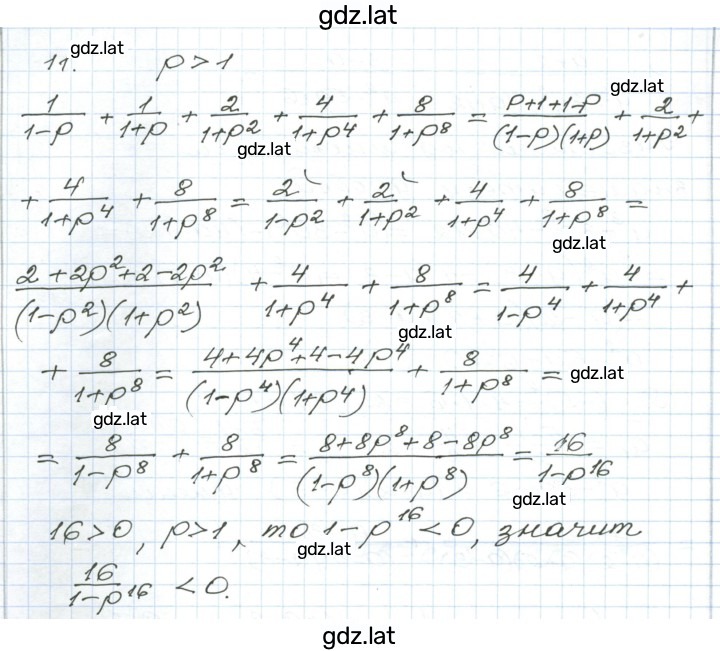 gdz.lat
11. gdz.lat p > 1
gdz.lat
1/(1-p) + 1/(1+p) + 2/(1+p²) + 4/(1+p⁴) + 8/(1+p⁸) = (p+1+1-p)/((1-p)(1+p)) + 2/(1+p²) +
gdz.lat
+ 4/(1+p⁴) + 8/(1+p⁸) = 2/(1-p²) + 2/(1+p²) + 4/(1+p⁴) + 8/(1+p⁸) =
gdz.lat
(2+2p²+2-2p²)/((1-p²)(1+p²)) + 4/(1+p⁴) + 8/(1+p⁸) = 4/(1-p⁴) + 4/(1+p⁴) +
gdz.lat
+ 8/(1+p⁸) = (4+4p⁴+4-4p⁴)/((1-p⁴)(1+p⁴)) + 8/(1+p⁸) = gdz.lat
gdz.lat
= 8/(1-p⁸) + 8/(1+p⁸) = (8+8p⁸+8-8p⁸)/((1-p⁸)(1+p⁸)) = 16/(1-p¹⁶)
gdz.lat
16>0, p>1, то 1-p¹⁶ < 0, значит
gdz.lat
16/(1-p¹⁶) < 0.
gdz.lat